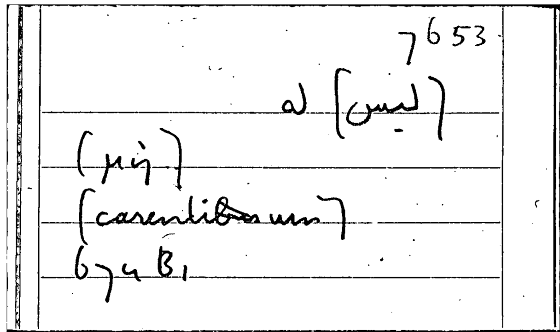 7653
[ليس] لا
(μή)
[carentibus um]
67a B1